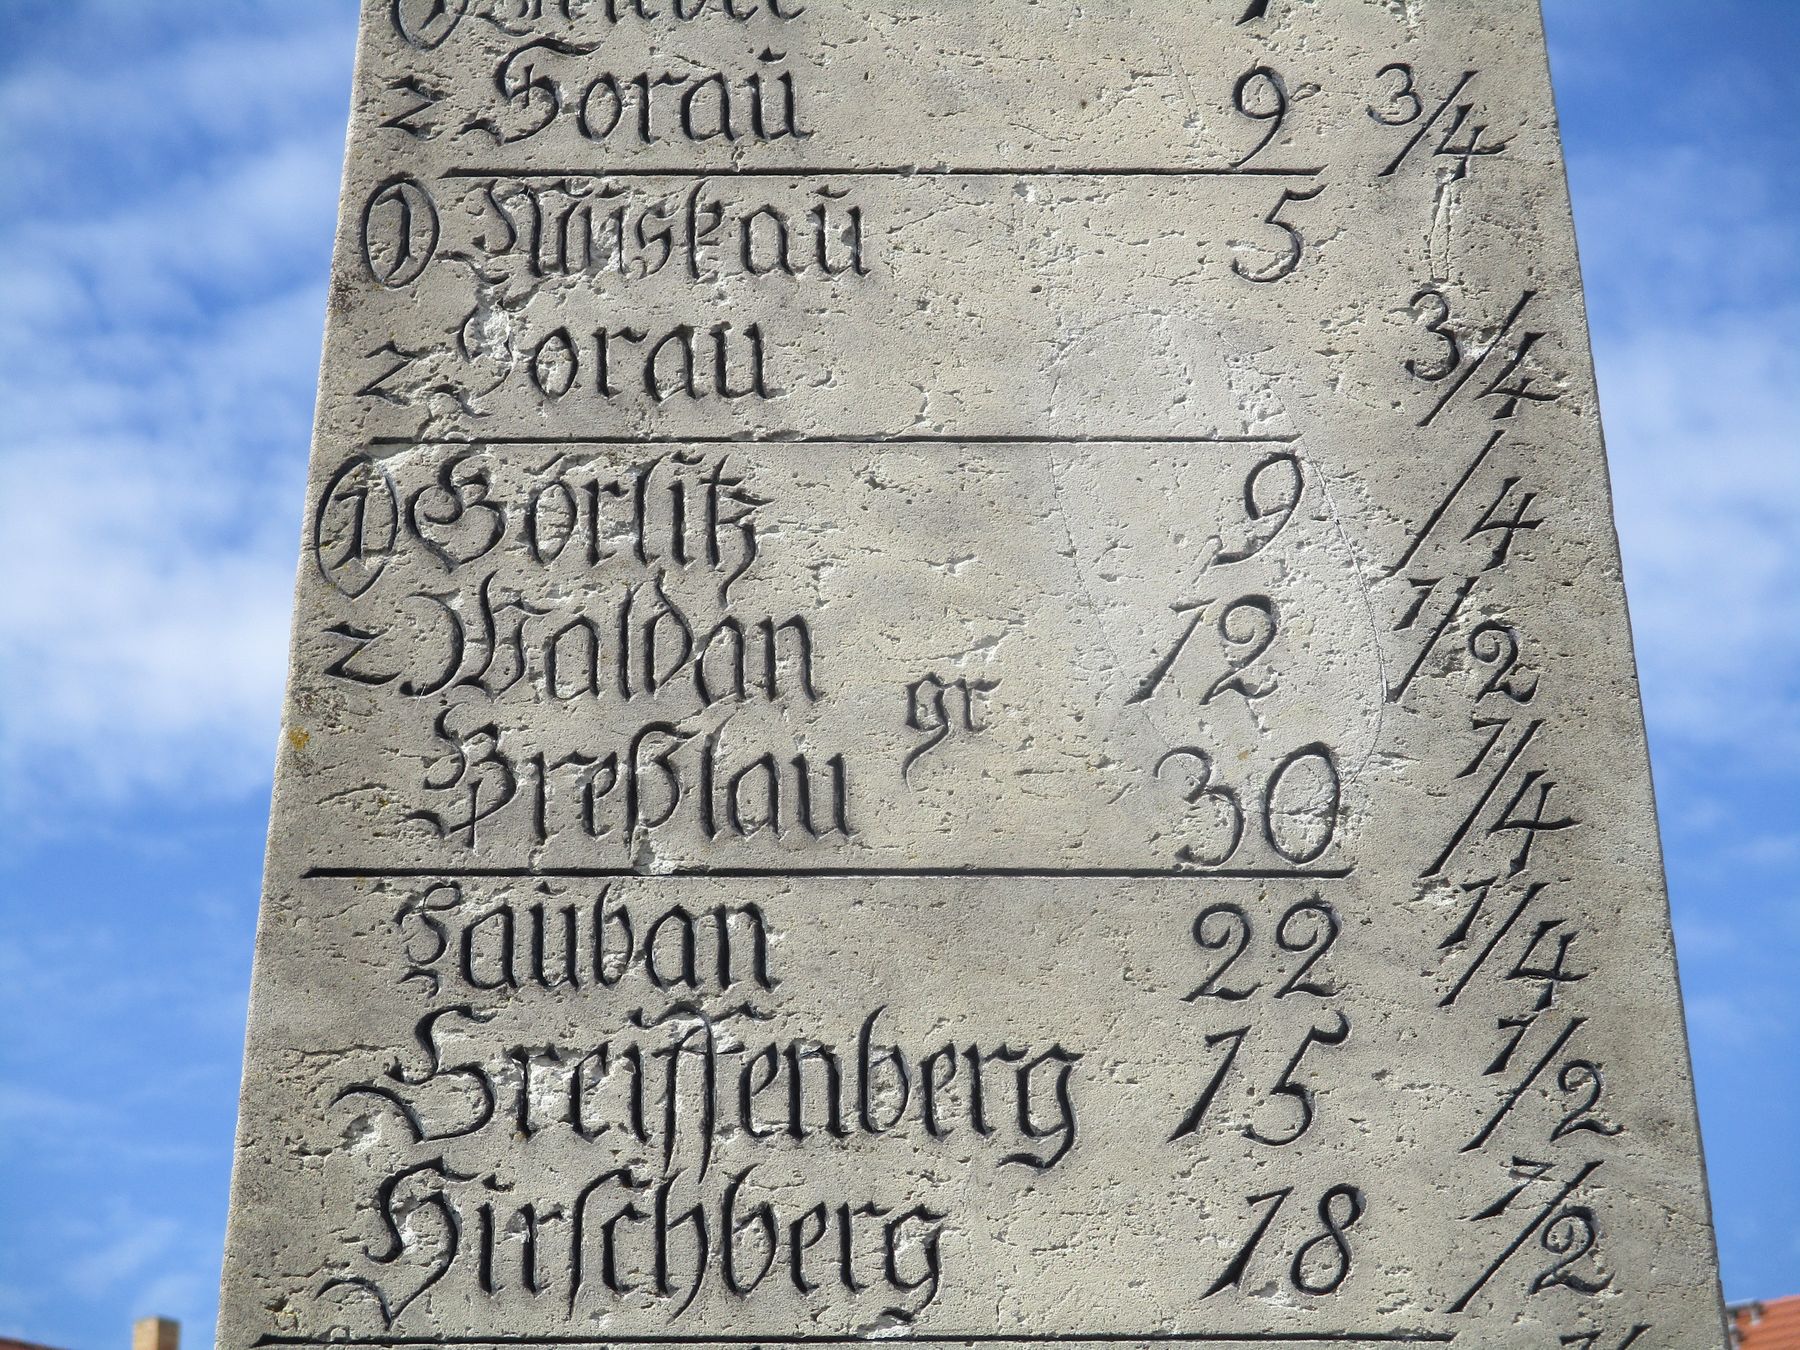 z Soraŭ 9 3/4
① Muskaŭ 5
z Sorau 3/4
① Görlitz 9 1/4
z Waldan 12 1/2
gr
Breßlau 30 1/4
Laŭban 22 1/4
Greiffenberg 15 1/2
Hirschberg 18 1/2